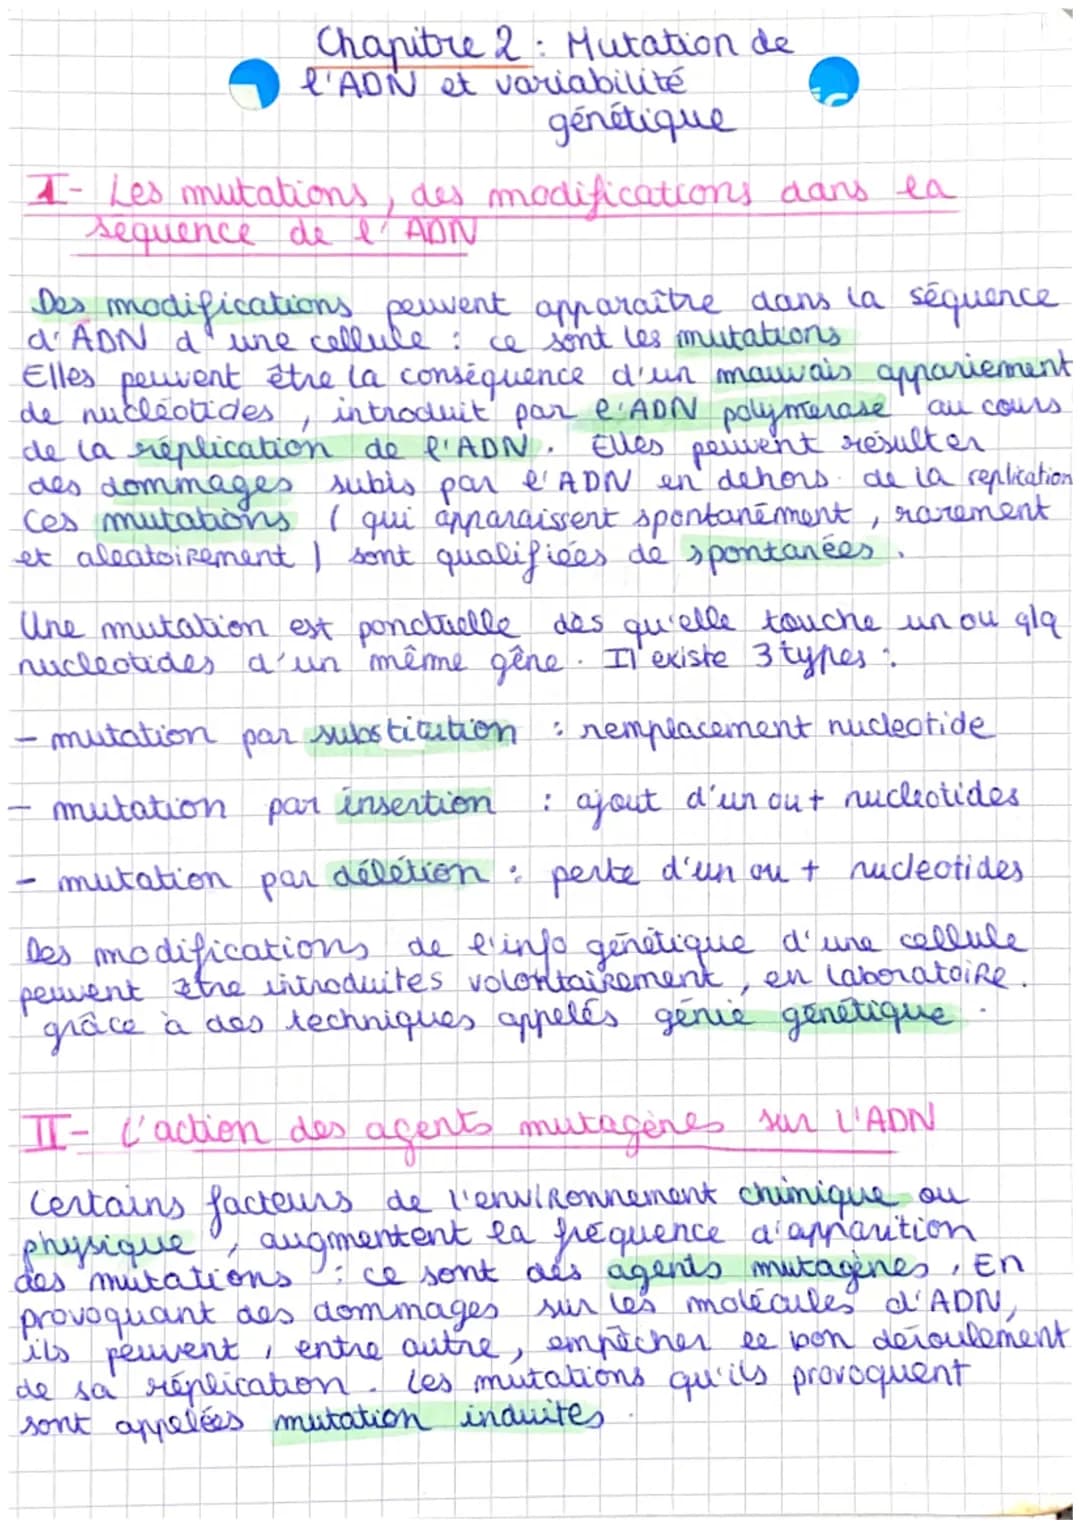 Chapitre 2 : Mutation de
l'ADN et variabilité
génétique
I- Les mutations, des modifications dans la
séquence de l'ADN
Des modifications peuvent apparaître dans la séquence
d'ADN d'une cellule : ce sont les mutations
Elles peuvent être la conséquence d'un mauvais appariement
de nucléotides, introduit par l'ADN polymérase au cours
de la réplication de l'ADN. Elles peuvent résulter
des dommages subis par l'ADN en dehors de la replication
Ces mutations (qui apparaissent spontanément, rarement
et aleatoirement) sont qualifiées de spontanées.
Une mutation est ponctuelle dès qu'elle touche un ou qlq
nucleotides d'un même gêne. Il existe 3 types :
- mutation par substitution : remplacement nucleotide
- mutation par insertion : ajout d'un ou + nucleotides
- mutation par délétion : perte d'un ou + nucleotides
Des modifications de l'info génétique d'une cellule
peuvent être introduites volontairement, en laboratoire.
grâce à des techniques appelés génie génétique.
II- L'action des agents mutagènes sur l'ADN
Certains facteurs de l'environnement chimique ou
physique, augmentent la fréquence d'apparition
des mutations : ce sont des agents mutagènes. En
provoquant des dommages sur les molécules d'ADN,
ils peuvent, entre autre, empêcher le bon déroulement
de sa réplication. Les mutations qu'ils provoquent
sont appelées mutation induites.